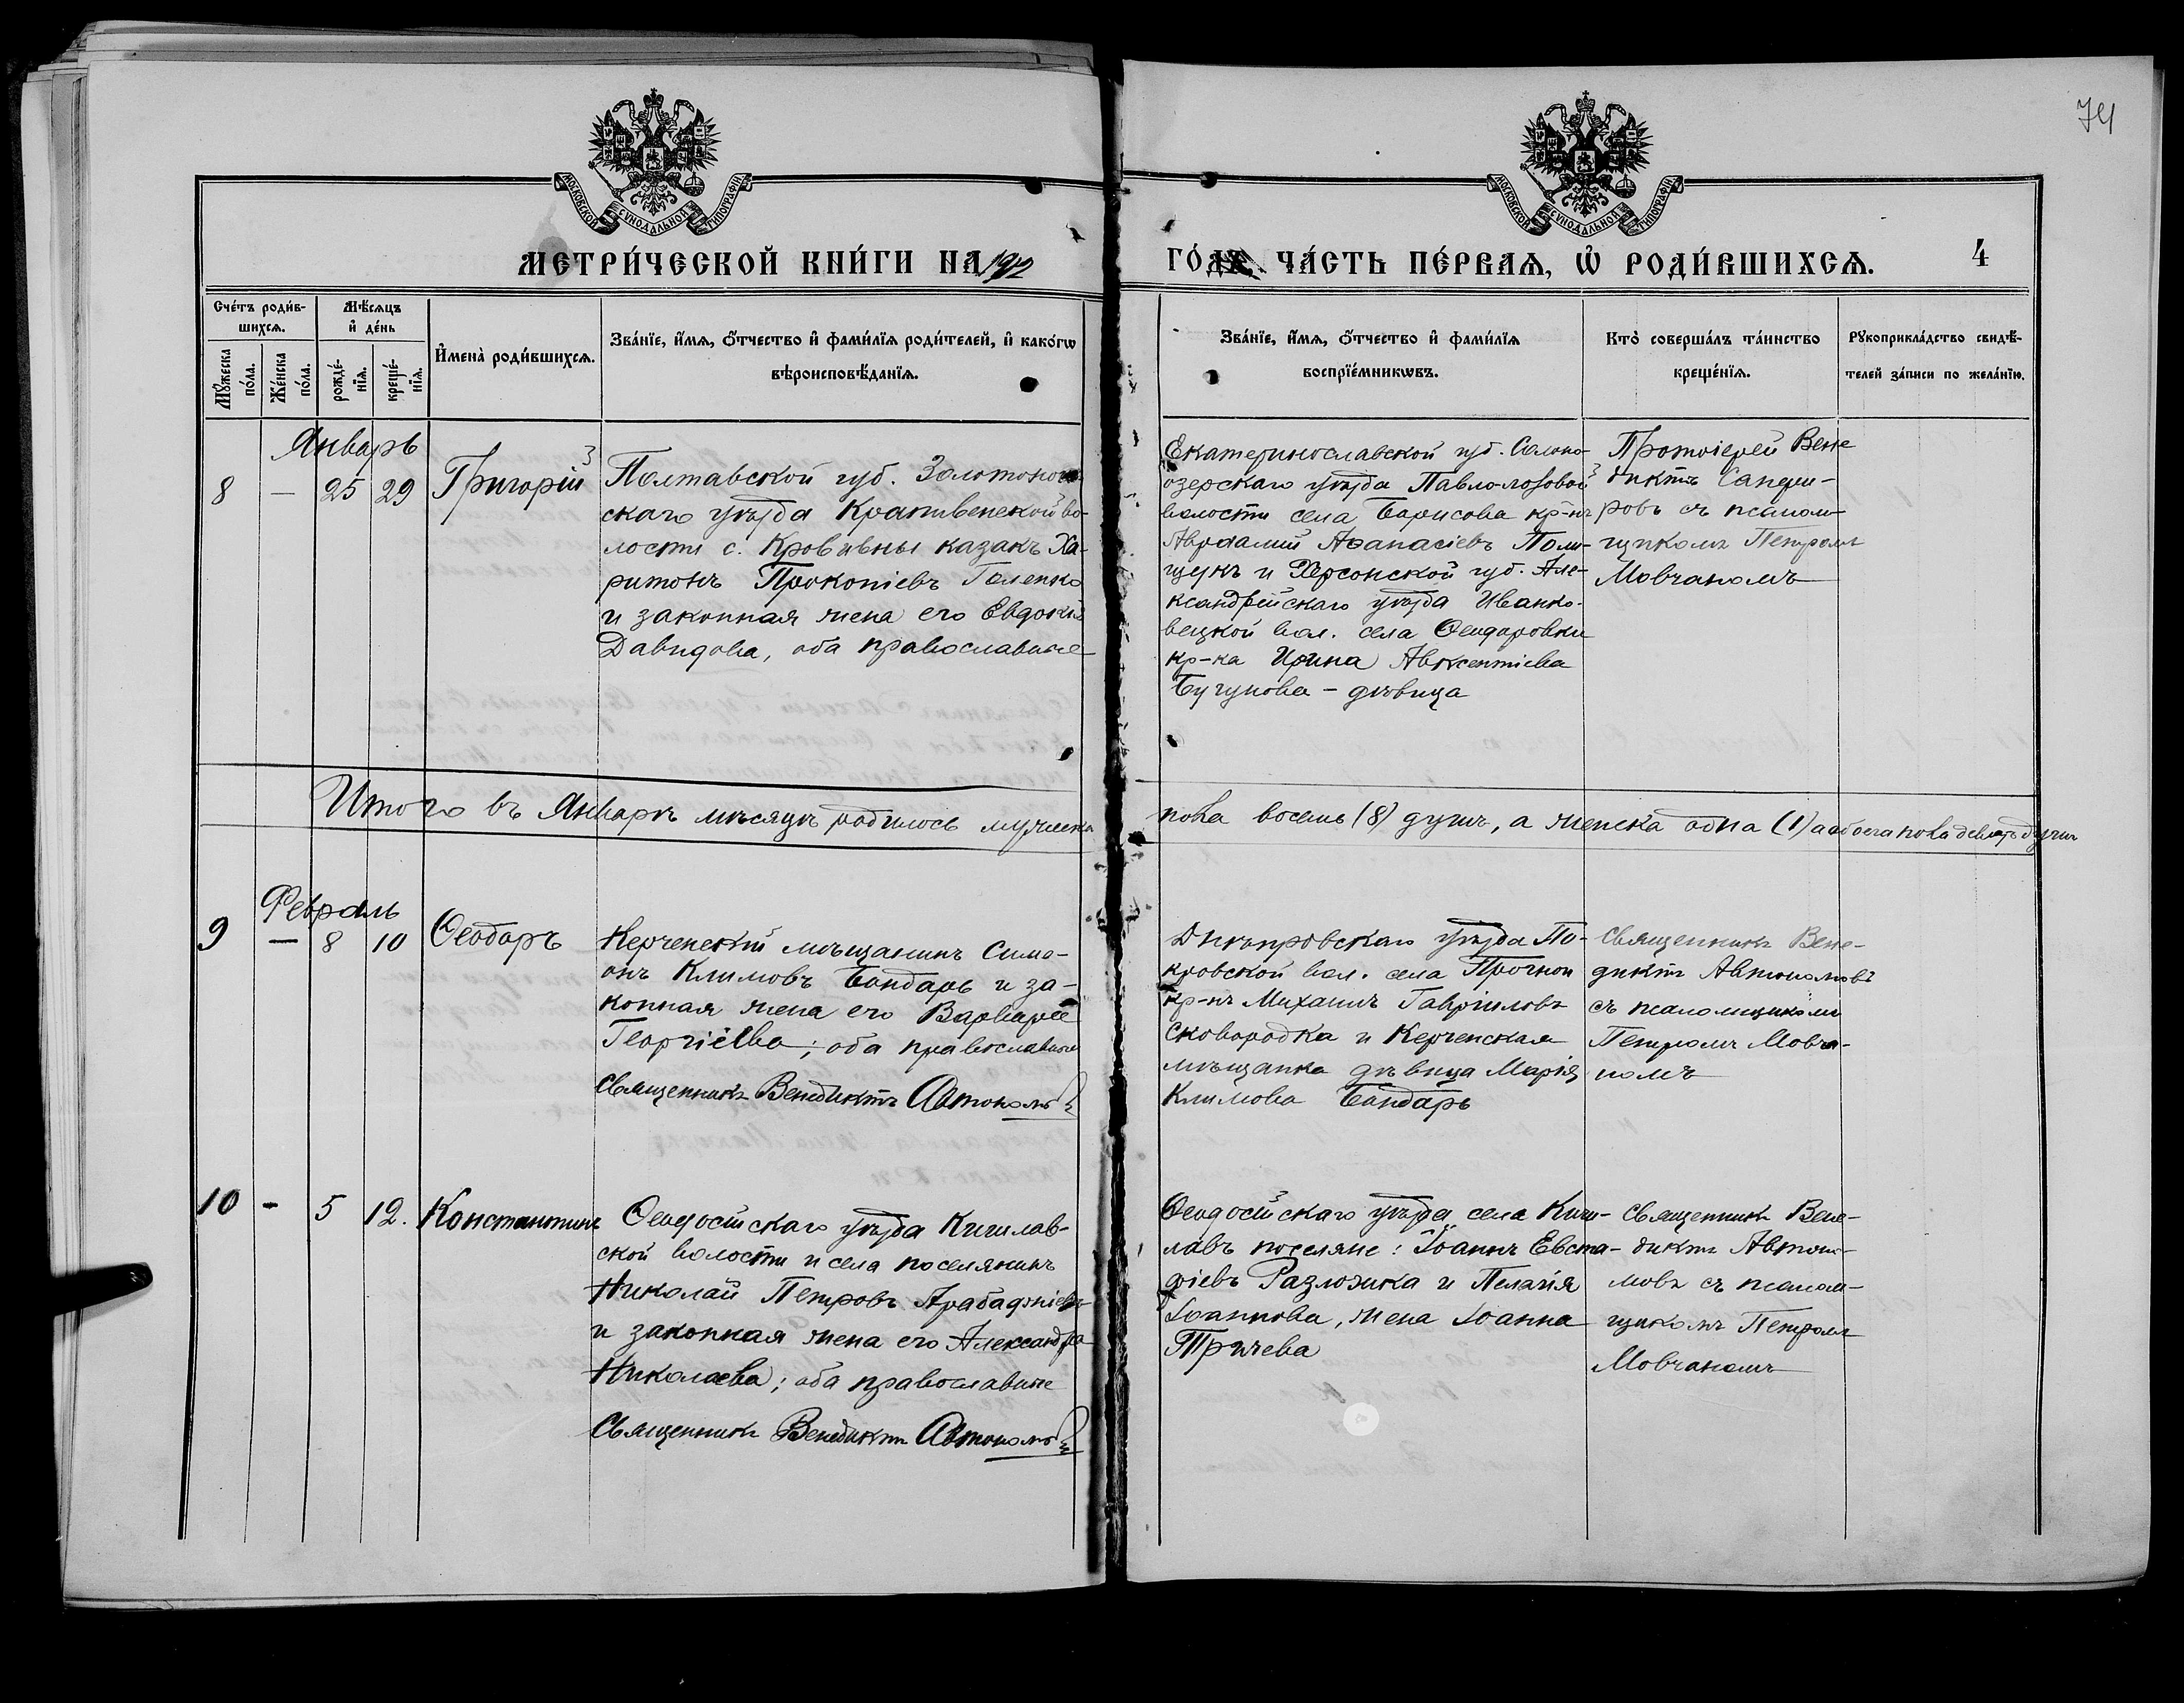 74
МОСКОВСКОЙ СѴНОДАЛЬНОЙ ТИПОГРАФІИ
МОСКОВСКОЙ СѴНОДАЛЬНОЙ ТИПОГРАФІИ
МЕТРИ́ЧЕСКОЙ КНИ́ГИ НА
ГО́ДЪ. ЧА́СТЬ ПЕ́РВАѦ, Ѡ҆ РОДИ́ВШИХСѦ.
4
Сче́тъ роди́в-
шихсѧ.
Мꙋ́жеска по́ла.
Же́нска по́ла.
Мѣ́сѧцъ
и҆ де́нь
рожде́-нїѧ.
креще́-нїѧ.
И҆мена̀ роди́вшихсѧ.
Зва́нїе, и҆́мѧ, ѻ҆́тчество и҆ фами́лїѧ роди́телей, и҆ како́гѡ
вѣроисповѣ́данїѧ.
Зва́нїе, и҆́мѧ, ѻ҆́тчество и҆ фами́лїѧ
воспрїе́мникѡвъ.
Кто̀ соверша́лъ та́инство
креще́нїѧ.
Рꙋкоприкла́дство свидѣ́-
телей за́писи по жела́нїю.
Январь
8 — 25 29 Григорій
Полтавской губ. Золотонош
скаго уѣзда Крапивенской во-
лости с. Кропивны казакъ Ха-
ритонъ Прокопіевъ Галенко
и законная жена его Евдокія
Давидова, оба православные
Екатеринославской губ.
уѣзда Павлолозовой
волости села Борисова кр-нъ
Авраамий Афанасіевъ Поли-
щукъ и Херсонской губ. Але-
ксандрійскаго уѣзда Иванко-
вецкой вол. села Ѳеодоровки
кр-ка Ирина Авксентіева
Бугунова – дѣвица
Протоіерей Вене
диктъ
ровъ съ псалом-
щикомъ Петромъ
Мовчаномъ
Итого въ Январѣ мѣсяцѣ родилось мужеска
пола восемь (8) душъ, а женска одна (1) а обоего пола девять душъ
Февраль
9 — 8 10 Ѳеодоръ
Керченскій мѣщанинъ Симе-
онъ Климовъ Бондарь и за-
конная жена его Варвара
Георгіева; оба православные
Священникъ Венедиктъ Автономовъ
Днѣпровскаго уѣзда По-
кровской вол. села Прогнои
кр-нъ Михаилъ Гавріиловъ
Сковородка и Керченская
мѣщанка дѣвица Марія
Климова Бондарь
Священникъ Вене-
диктъ Автономовъ
съ псаломщикомъ
Петромъ Мовча-
номъ
10 - 5 12. Константинъ
Ѳеодосійскаго уѣзда Кишлав-
ской волости и села поселянинъ
Николай Петровъ Арабаджіевъ
и законная жена его Александра
Николаева; оба православные
Священникъ Венедиктъ Автономовъ
Ѳеодосійскаго уѣзда села Киш-
лавъ поселяне: Іоаннъ Евста-
фіевъ Разложка и Пелагія
Іоаннова, жена Іоанна
Тричева
Священникъ Вене-
диктъ Автоно-
мовъ съ псалом-
щикомъ Петромъ
Мовчаномъ